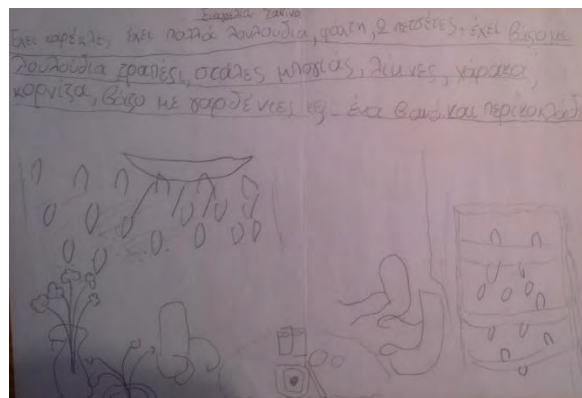 Έχει καρέκλες, έχει πολλά λουλούδια, φώτη, 2 πετσέτες. έχει βάζο με
λουλούδια τραπέζι, στάλες μπογιάς, λίμνες, χάρακα,
κορνίζα, βάζο με γαρδένιες ένα βουνό και περικοκλάδα